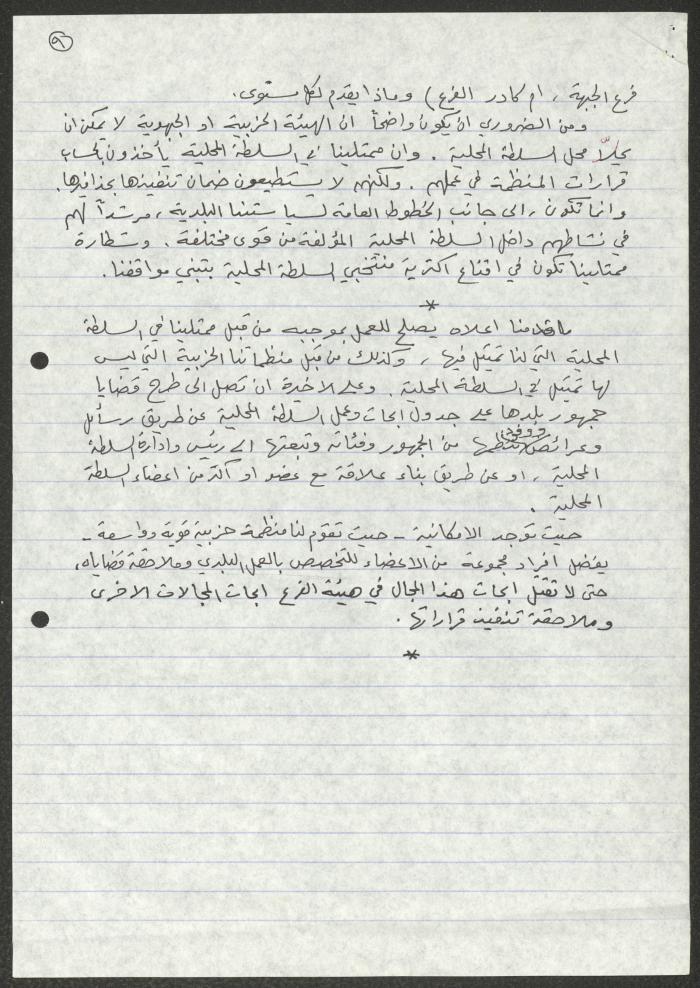 ٩
فرع الجبهة، ام كادر الفرع) وماذا يقدم لكل مستوى.
ومن الضروري ان يكون واضحاً ان الهيئة الحزبية او الجبهوية لا يمكن ان
يحلّا محل السلطة المحلية. وان ممثلينا في السلطة المحلية يأخذون بالحساب
قرارات المنظمة في عملهم. ولكنهم لا يستطيعون ضمان تنفيذها بحذافيرها.
وانما تكون، الى جانب الخطوط العامة لسياستنا البلدية، مرشداً لهم
في نشاطهم داخل السلطة المحلية المؤلفة من قوى مختلفة. وشطارة
ممثلينا تكون في اقناع اكثرية منتخبي السلطة المحلية بتبني مواقفنا.
*
ما قدمنا اعلاه يصلح للعمل بموجبه من قبل ممثلينا في السلطة
المحلية التي لنا تمثيل فيها، وكذلك من قبل منظماتنا الحزبية التي ليس
لها تمثيل في السلطة المحلية. وعلى الاخيرة ان تصل الى طرح قضايا
جمهور بلدها على جدول ابحاث وعمل السلطة المحلية عن طريق رسائل
وعرائض ووفود تنظمها من الجمهور وفئاته وتبعثها الى رئيس وادارة السلطة
المحلية، او عن طريق بناء علاقة مع عضو او أكثر من اعضاء السلطة
المحلية.
حيث توجد الامكانية - حيث تقوم لنا منظمة حزبية قوية وواسعة -
يفضل افراد مجموعة من الاعضاء للتخصص بالعمل البلدي وملاحقة قضاياه،
حتى لا تقتل ابحاث هذا المجال في هيئة الفرع ابحاث المجالات الاخرى
وملاحقة تنفيذ قراراتها.
*